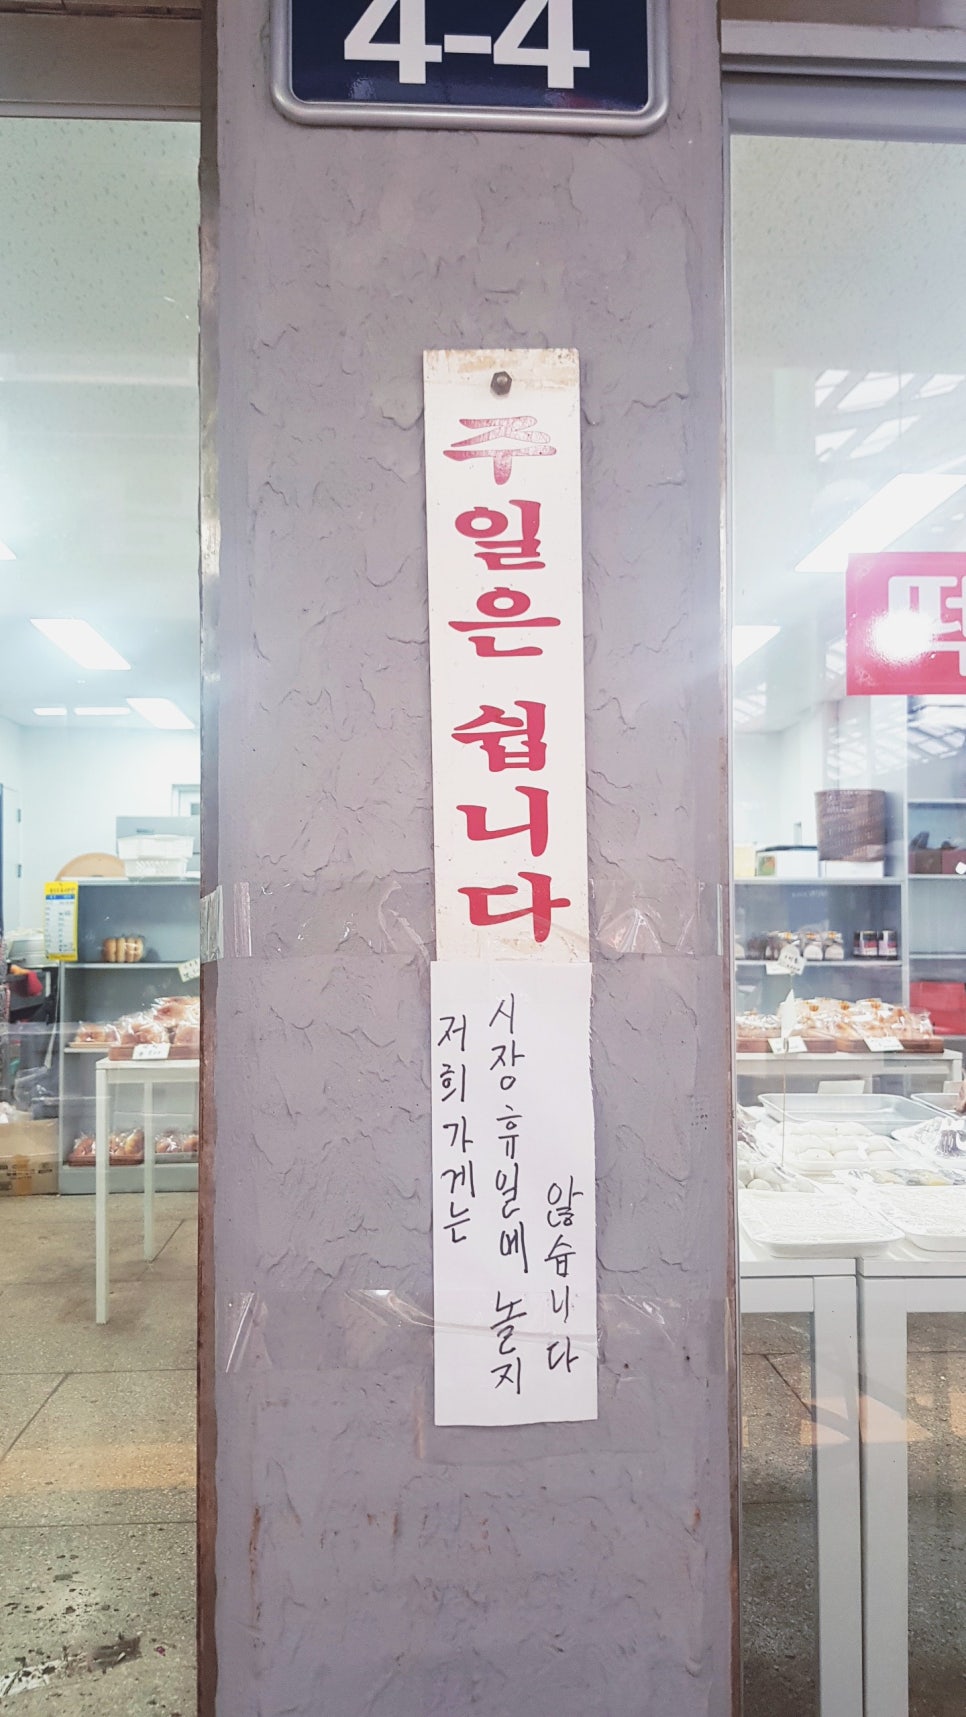 4-4
주일은 쉽니다
저희가게는
시장휴일에 놀지
않습니다